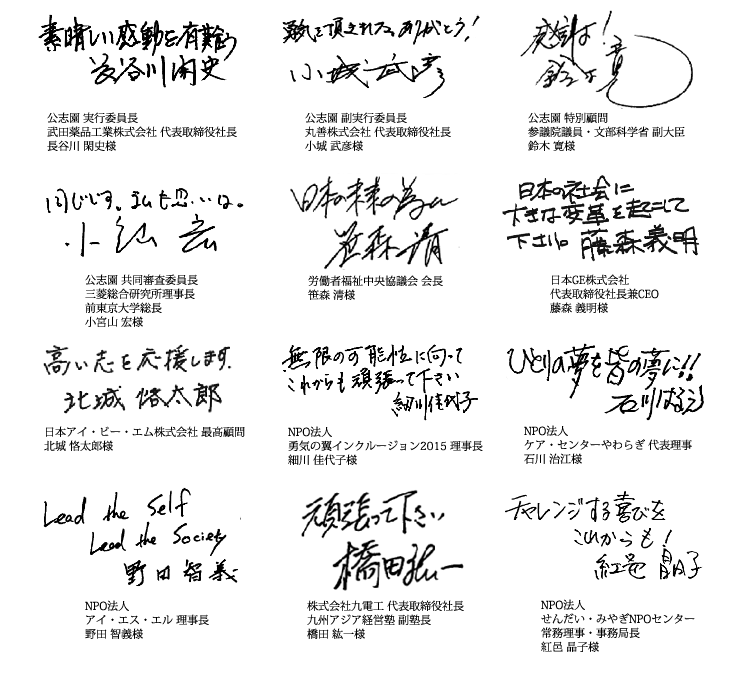 素晴しい感動を有難う
長谷川閑史
公志園 実行委員長
武田薬品工業株式会社 代表取締役社長
長谷川 閑史様
勇気を頂きました ありがとう!
小城武彦
公志園 副実行委員長
丸善株式会社 代表取締役社長
小城 武彦様
鈴木寛
公志園 特別顧問
参議院議員・文部科学省 副大臣
鈴木 寛様
同じです。私も思いは。
小宮山宏
公志園 共同審査委員長
三菱総合研究所理事長
前東京大学総長
小宮山 宏様
日本の未来の為に
笹森清
労働者福祉中央協議会 会長
笹森 清様
日本の社会に
大きな変革を起こして
下さい。藤森義明
日本GE株式会社
代表取締役社長兼CEO
藤森 義明様
高い志を応援します.
北城恪太郎
日本アイ・ビー・エム株式会社 最高顧問
北城 恪太郎様
無限の可能性に向って
これからも頑張って下さい
細川佳代子
NPO法人
勇気の翼インクルージョン2015 理事長
細川 佳代子様
ひとりの夢を皆の夢に!!
石川はるえ
NPO法人
ケア・センターやわらぎ 代表理事
石川 治江様
Lead the Self
Lead the Society
野田智義
NPO法人
アイ・エス・エル 理事長
野田 智義様
頑張って下さい
橋田紘一
株式会社九電工 代表取締役社長
九州アジア経営塾 副塾長
橋田 紘一様
チャレンジする喜びを
これからも!
紅邑晶子
NPO法人
せんだい・みやぎNPOセンター
常務理事・事務局長
紅邑 晶子様